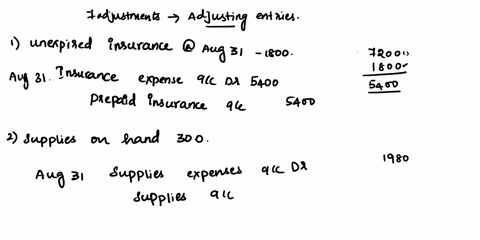 Adjustments → Adjusting entries.
1) unexpired insurance @ Aug 31 - 1800.
7200
1800
5400
Aug 31. Insurance expense a/c Dr 5400
Prepaid insurance a/c 5400
2) Supplies on hand 300.
1980
Aug 31 Supplies expenses a/c Dr
Supplies a/c